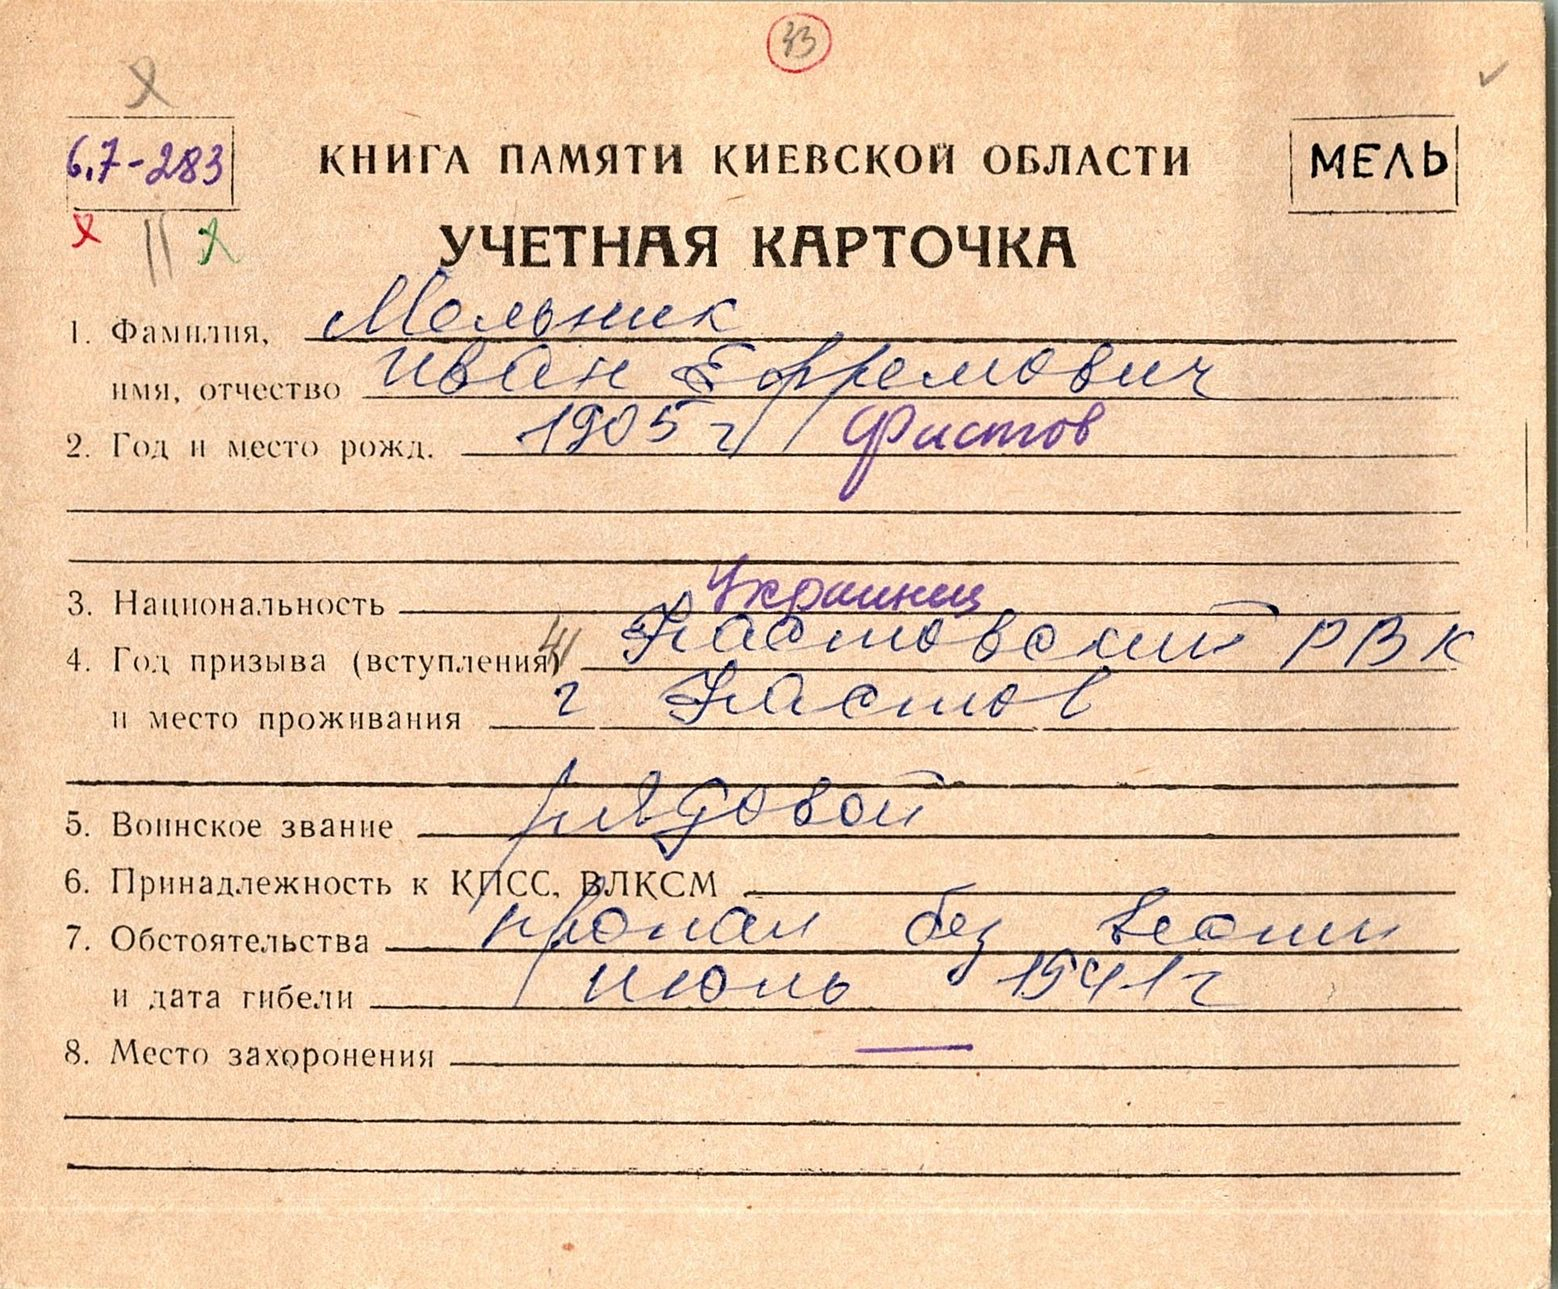 43
6.7-283
КНИГА ПАМЯТИ КИЕВСКОЙ ОБЛАСТИ
МЕЛЬ
УЧЕТНАЯ КАРТОЧКА
1. Фамилия, Мельник
имя, отчество Иван Ефремович
2. Год и место рожд. 1905 г Фастов
3. Национальность Украинец
4. Год призыва (вступления) 41 Фастовский РВК
и место проживания г Фастов
5. Воинское звание рядовой
6. Принадлежность к КПСС, ВЛКСМ
7. Обстоятельства пропал без вести
и дата гибели июль 1941г
8. Место захоронения —